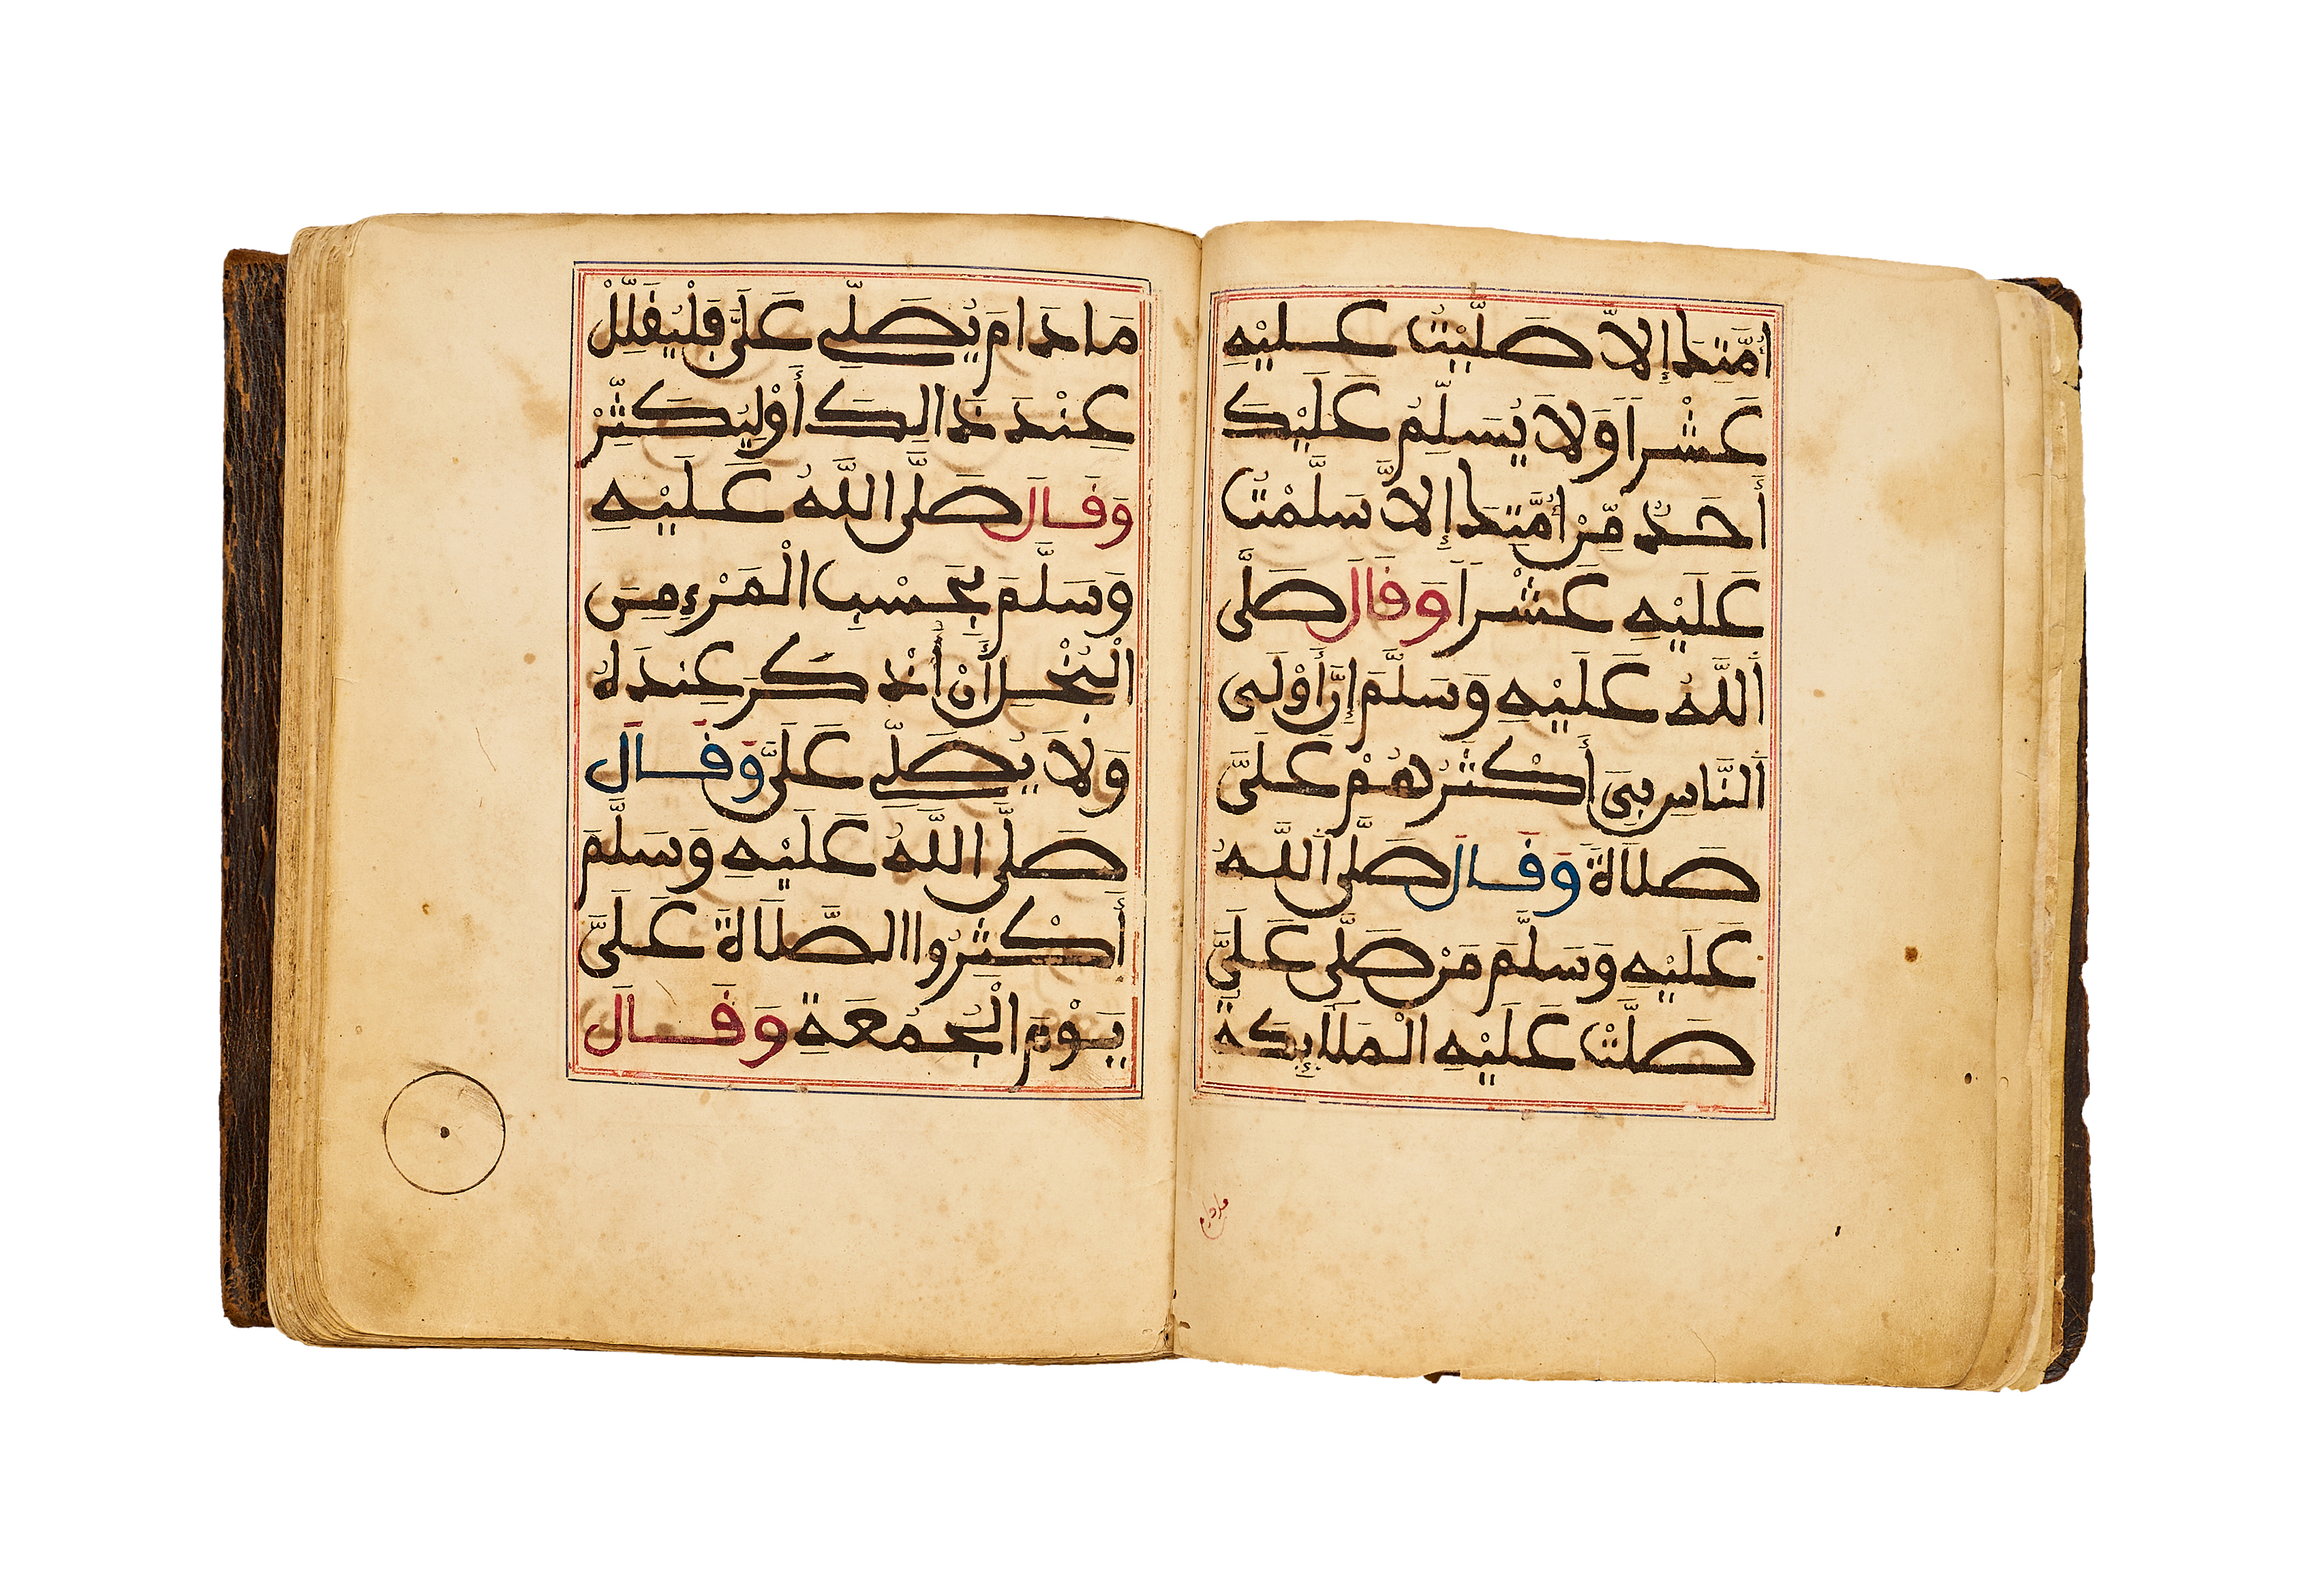 أُمَّتِكَ إِلاَّ صَلَّيْتُ عَلَيْهِ
عَشْراً وَلاَ يُسَلِّمُ عَلَيْكَ
أَحَدٌ مِّنْ أُمَّتِكَ إِلاَّ سَلَّمْتُ
عَلَيْهِ عَشْراً وَقَالَ صَلَّى
اَللَّهُ عَلَيْهِ وَسَلَّمَ إِنَّ أَوْلَى
اَلنَّاسِ بِيَ أَكْثَرُهُمْ عَلَيَّ
صَلَاةً وَقَالَ صَلَّى اَللَّهُ
عَلَيْهِ وَسَلَّمَ مَنْ صَلَّى عَلَيَّ
صَلَّتْ عَلَيْهِ الْمَلَائِكَةُ
مادام
مَا دَامَ يُصَلِّي عَلَيَّ فَلْيُقَلِّلْ
عِنْدَ ذَالِكَ أَوْ لِيُكَثِّرْ
وَقَالَ صَلَّى اللَّهُ عَلَيْهِ
وَسَلَّمَ بِحَسْبِ الْمَرْءِ مِنَ
الْبُخْلِ أَنْ أُذْكَرَ عِندَهُ
وَلاَ يُصَلِّي عَلَيَّ وَقَالَ
صَلَّى اللَّهُ عَلَيْهِ وَسَلَّمَ
أَكْثِرُوا الصَّلَاةَ عَلَيَّ
يَوْمَ الْجُمُعَةِ وَقَالَ